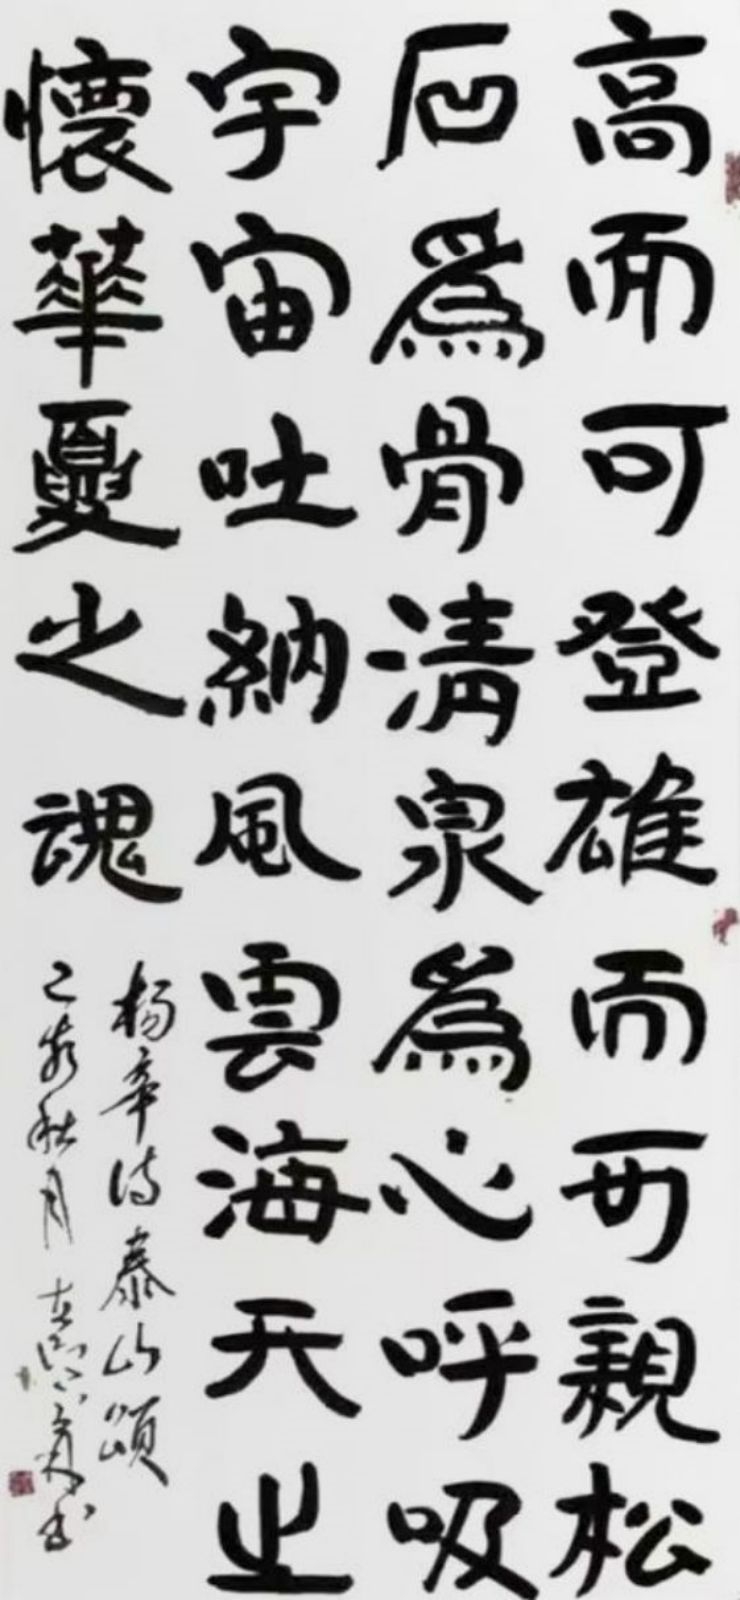 高而可登雄而可親松
石爲骨清泉爲心呼吸
宇宙吐納風雲海天之
懷華夏之魂
杨辛诗泰山頌
己亥秋月 书